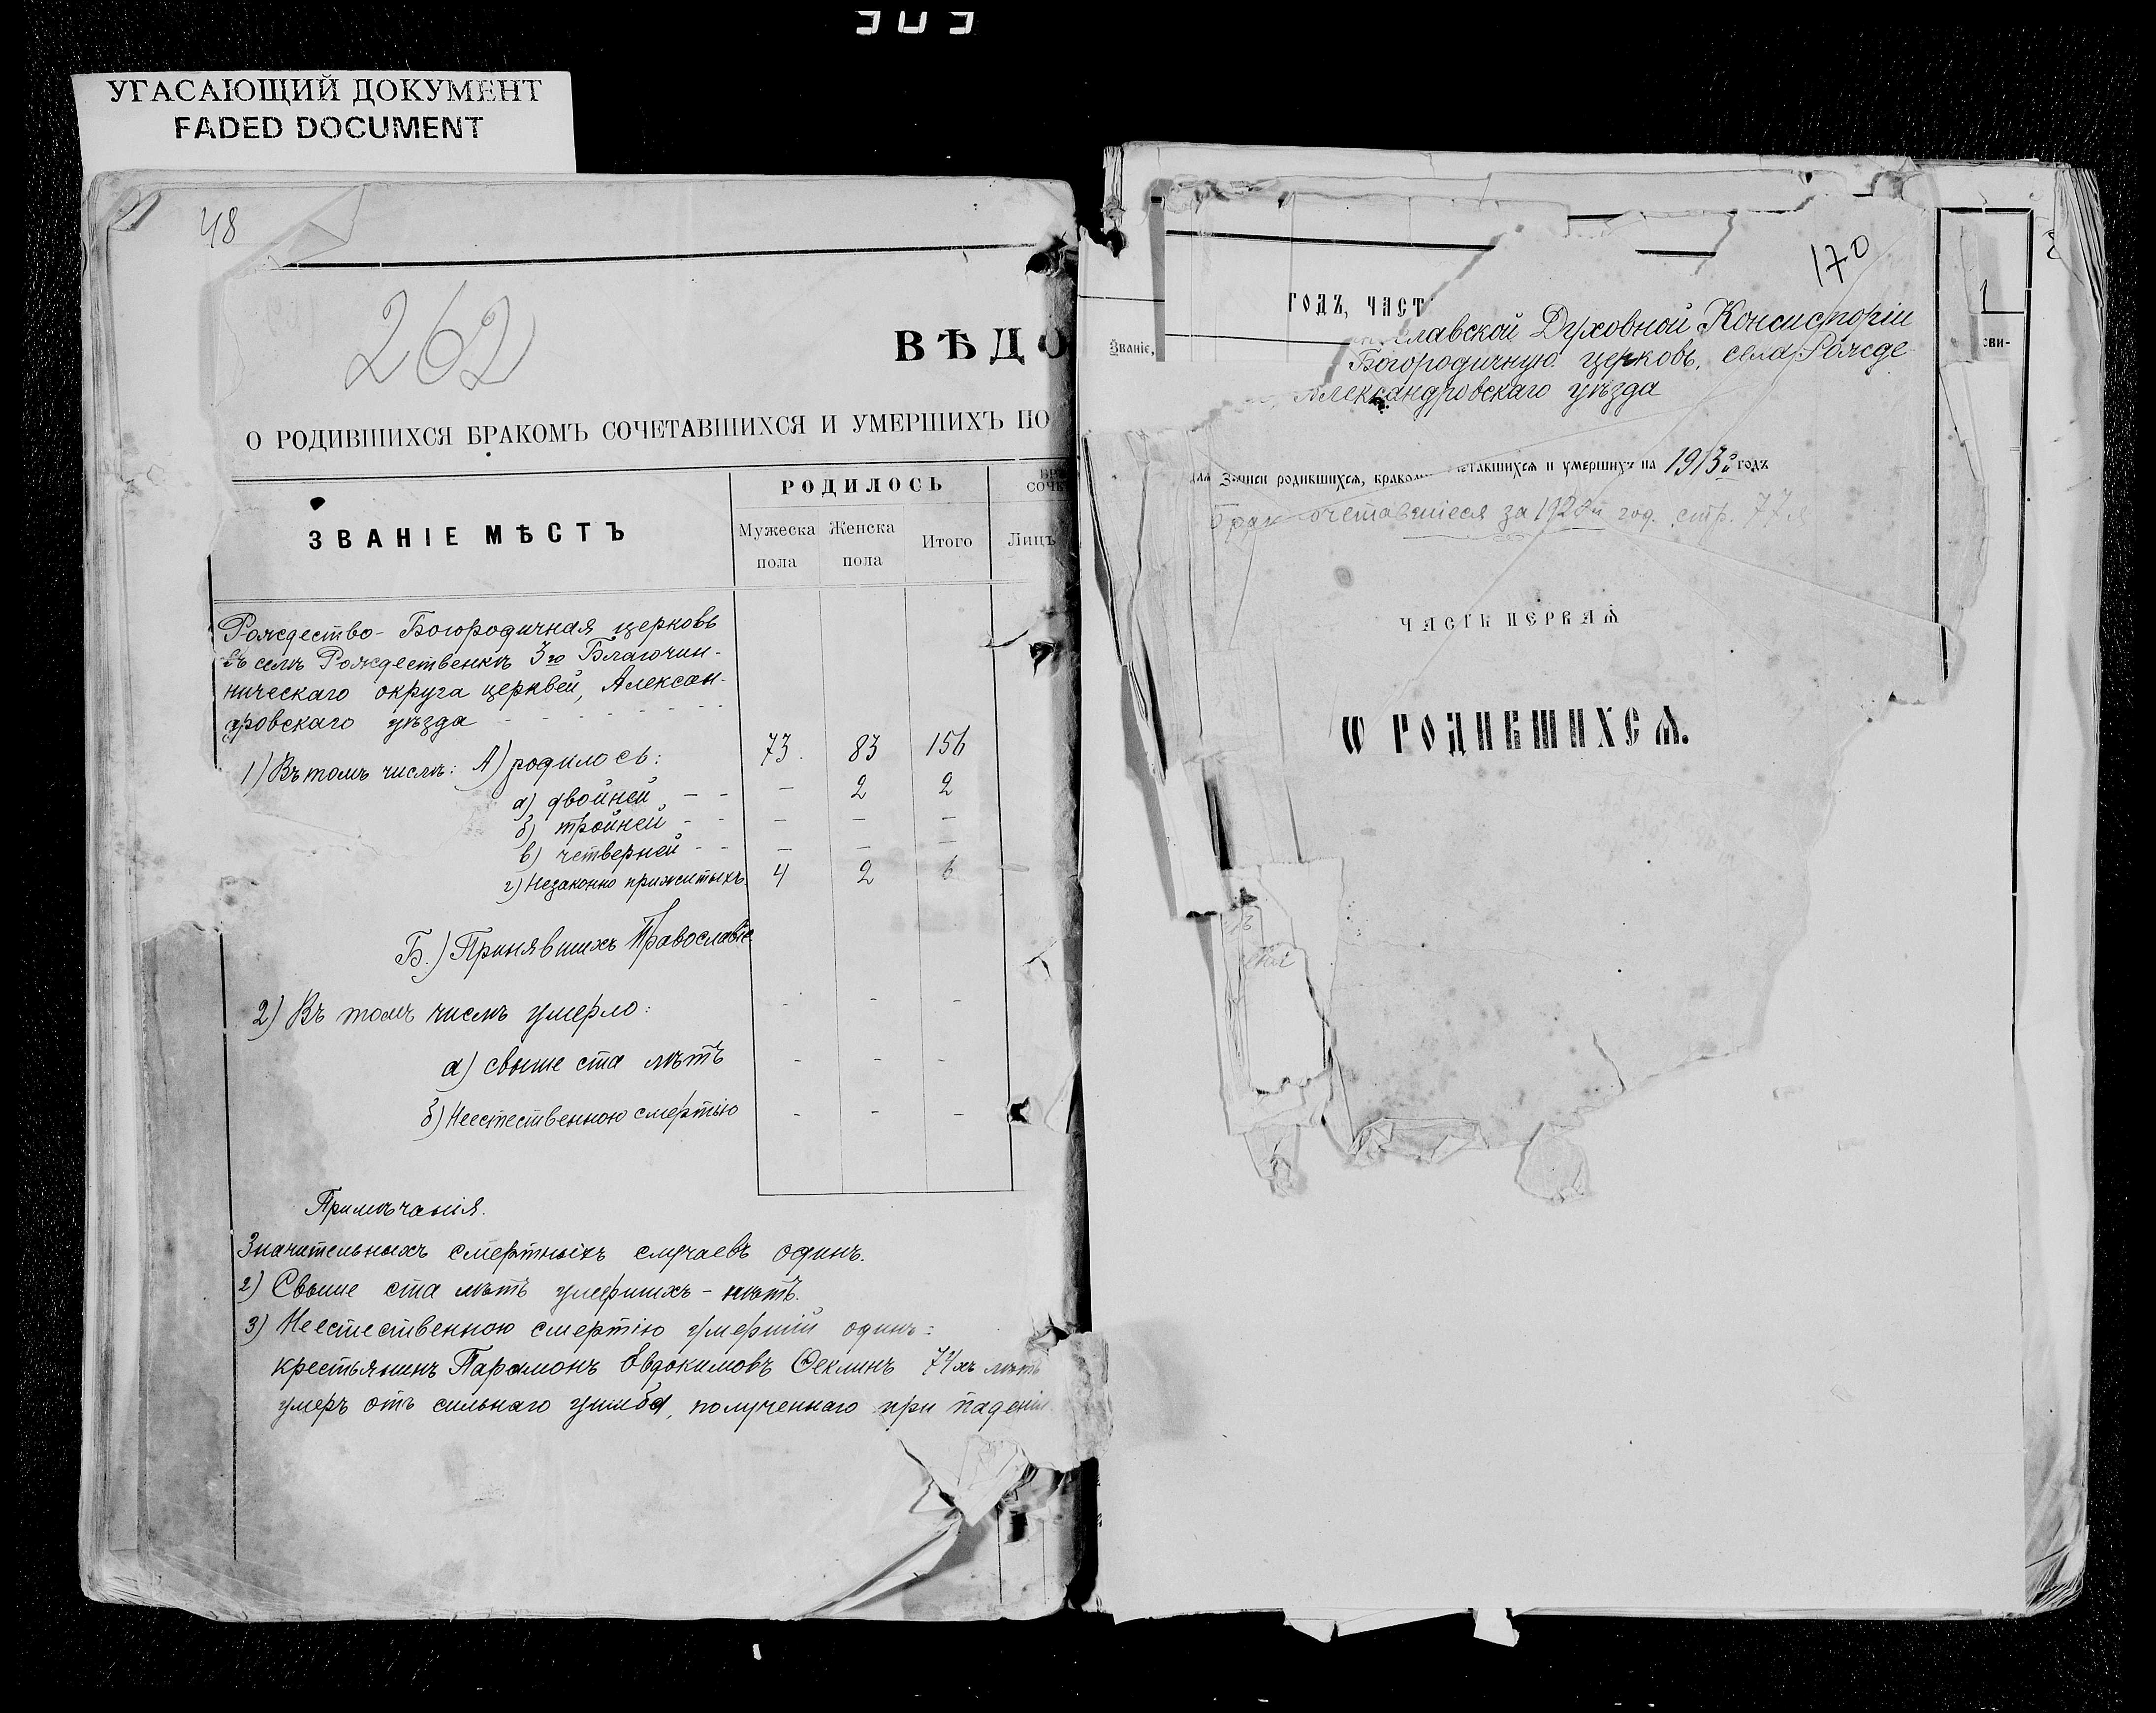 УГАСАЮЩИЙ ДОКУМЕНТ
FADED DOCUMENT
48
262
ВѢДО
О РОДИВШИХСЯ БРАКОМЪ СОЧЕТАВШИХСЯ И УМЕРШИХЪ ПО
ЗВАНІЕ МѢСТЪ
РОДИЛОСЬ
Мужеска пола
Женска пола
Итого
Лицъ
Рождество-Богородичная церковь
въ селѣ Рождественкѣ 3го Благочин-
ническаго округа церквей, Алексан-
дровскаго уѣзда - - - - - - - -
1) Въ томъ числѣ: А) родилось: 73. 83 156
а) двойней - - - 2 2
б) тройней - - - - -
в) четверней - - - - -
г) Незаконно прижитыхъ 4 2 6
Б.) Принявшихъ Православіе
2) Въ томъ числѣ умерло: - - -
а) свыше ста лѣтъ - - -
б) Неестественною смертію - - -
Примѣчанія.
Значительныхъ смертныхъ случаевъ одинъ.
2) Свыше ста лѣтъ умершихъ - нѣтъ.
3) Неестественною смертію умершій одинъ:
крестьянинъ Парамонъ Евдокимовъ Феклинъ 74хъ лѣтъ
умеръ отъ сильнаго ушиба, полученнаго при паденіи
170
Званіе,
сви-
ГОДЪ, ЧАСТ
славской Духовной Консисторіи
Богородичную церковь, села Рожде
Александровскаго уѣзда
для Записи родившихся, браком етавшихся и умершихъ на 1913й годъ
Брак очетавшіеся за 1920й год. стр. 77
ЧАСТЬ ПЕРВАЯ
Ѡ РОДИВШИХСЯ.